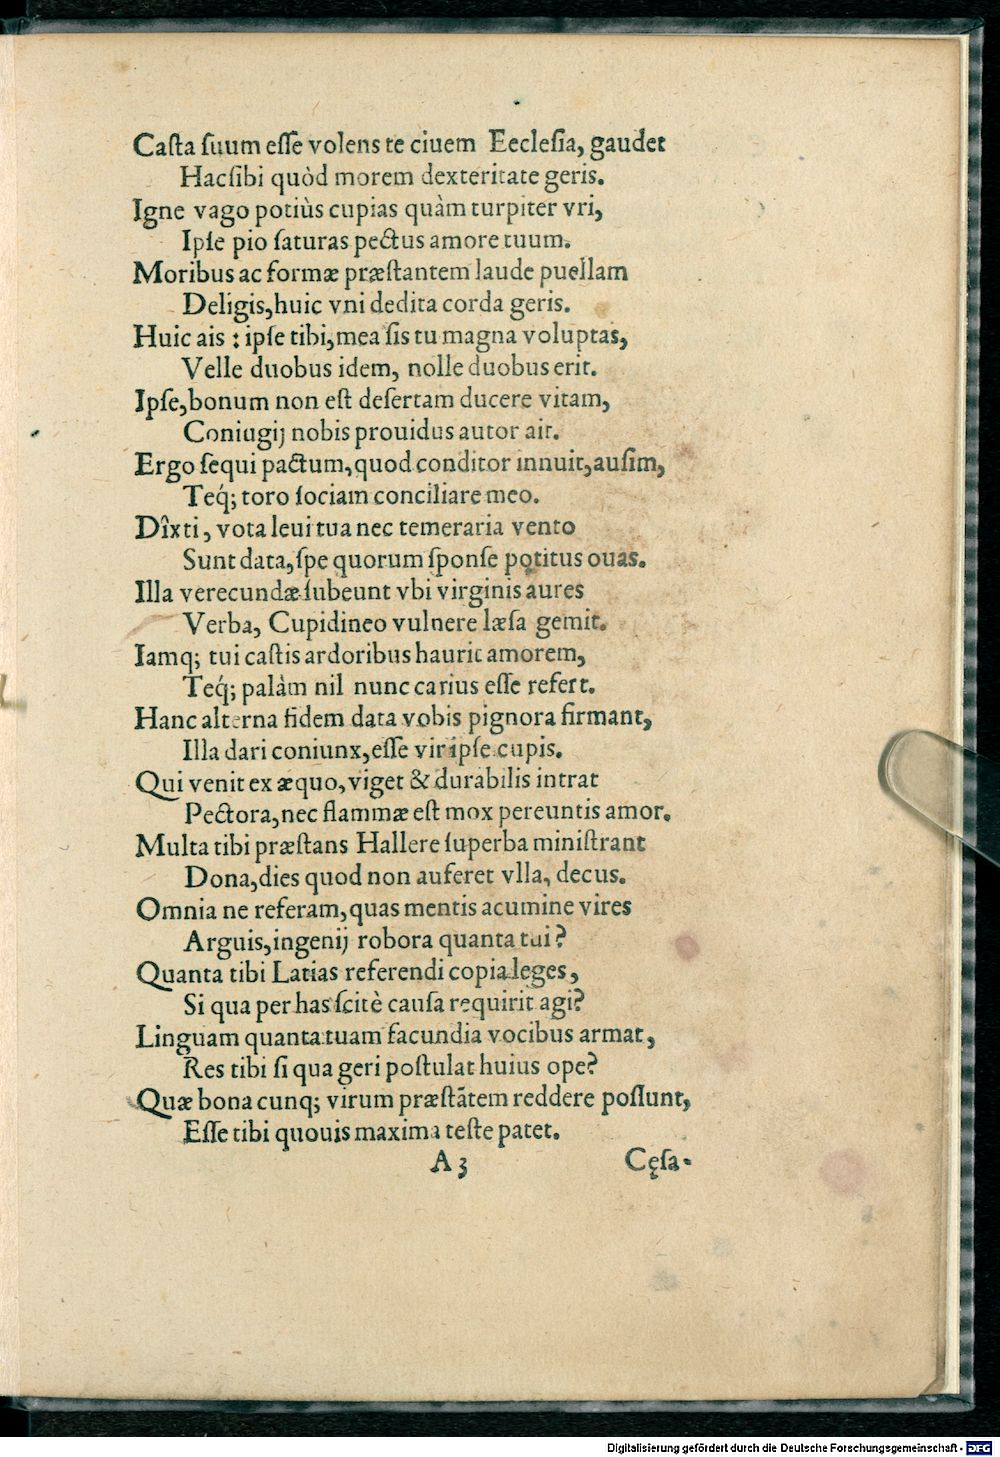 Caſta ſuum eſſe volens te ciuem Eeclesia, gaudet
Hacſibi quòd morem dexteritate geris.
Igne vago potiùs cupias quàm turpiter vri,
Ipſe pio ſaturas pectus amore tuum.
Moribus ac formæ præſtantem laude puellam
Deligis, huic vni dedita corda geris.
Huic ais : ipſe tibi, mea ſis tu magna voluptas,
Velle duobus idem, nolle duobus erit.
Ipſe, bonum non eſt deſertam ducere vitam,
Coniugij nobis prouidus autor ait.
Ergo ſequi pactum, quod conditor innuit, auſim,
Teq́; toro ſociam conciliare meo.
Dîxti, vota leui tua nec temeraria vento
Sunt data, ſpe quorum ſponſe potitus ouas.
Illa verecundæ ſubeunt vbi virginis aures
Verba, Cupidineo vulnere læſa gemit.
Iamq; tui caſtis ardoribus haurit amorem,
Teq́; palàm nil nunc carius eſſe refert.
Hanc alterna fidem data vobis pignora firmant,
Illa dari coniunx, eſſe vir ipſe cupis.
Qui venit ex æquo, viget & durabilis intrat
Pectora, nec flammæ eſt mox pereuntis amor.
Multa tibi præſtans Hallere ſuperba miniſtrant
Dona, dies quod non auferet vlla, decus.
Omnia ne referam, quas mentis acumine vires
Arguis, ingenij robora quanta tui?
Quanta tibi Latias referendi copia leges,
Si qua per has ſcitè cauſa requirit agi?
Linguam quanta tuam facundia vocibus armat,
Res tibi ſi qua geri poſtulat huius ope?
Quæ bona cunq; virum præſtãtem reddere poſſunt,
Eſſe tibi quouis maxima teſte patet.
A 3
Cęſa-
Digitalisierung gefördert durch die Deutsche Forschungsgemeinschaft - DFG